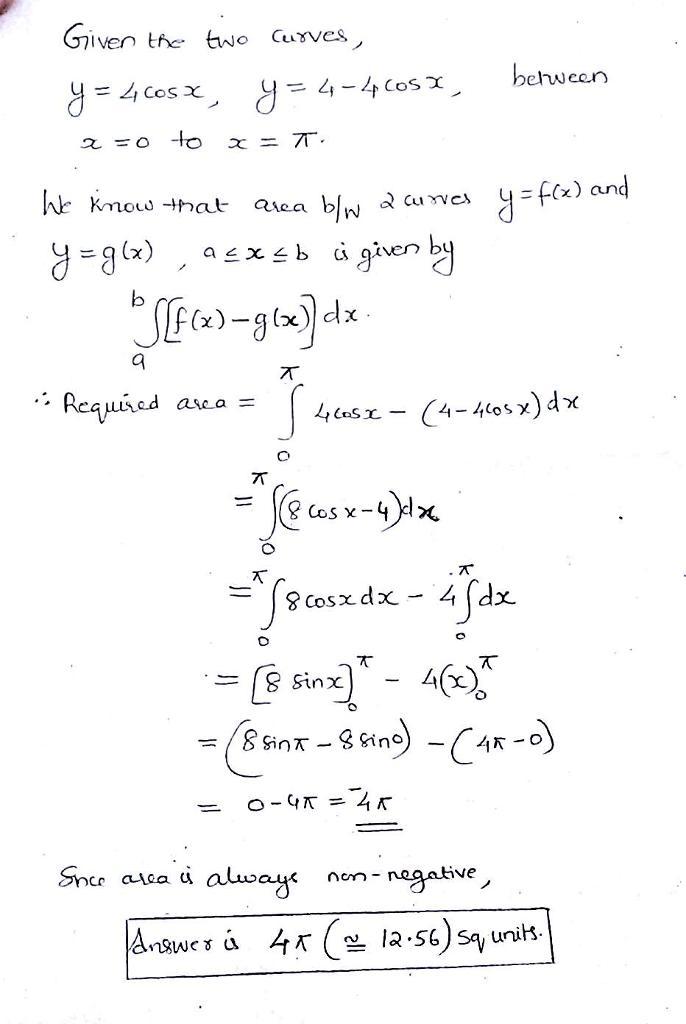 Given the two curves,
y = 4cosx, y = 4-4cosx, between
x = 0 to x = π.
We know that area b/w 2 curves y=f(x) and
y=g(x) , a≤x≤b is given by
b∫a [f(x)-g(x)] dx.
∴ Required area = π∫0 4cosx - (4-4cosx)dx
= π∫0 (8cosx-4)dx
= π∫0 8cosxdx - 4 π∫0 dx
= [8 sinx]π0 - 4(x)π0
= (8sinπ - 8sin0) - (4π-0)
= 0-4π = -4π
Since area is always non-negative,
Answer is 4π (≅ 12.56) Sq units.